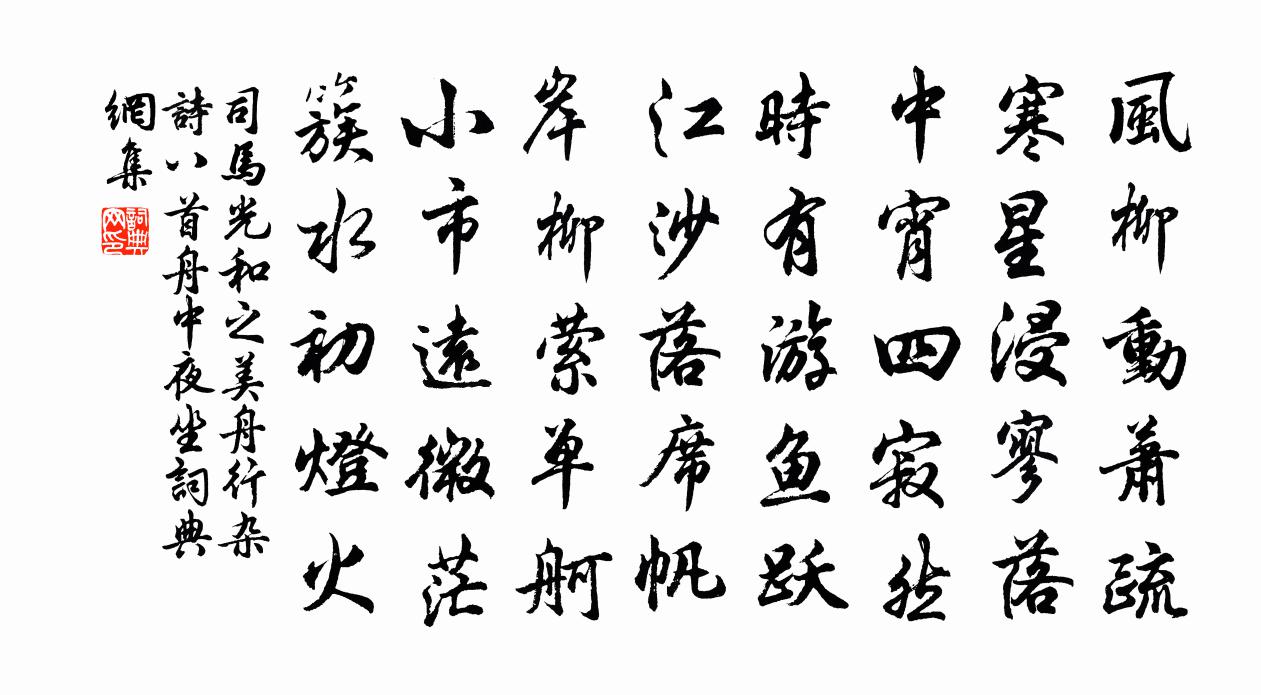 風柳動蕭疏
寒星浸寥落
中宵四寂然
時有游鱼跃
江沙落席帆
岸柳萦单舸
小市遠微茫
簇水初燈火
司馬光和之美舟行杂
詩八首舟中夜坐詞典
網集
詞典
网印